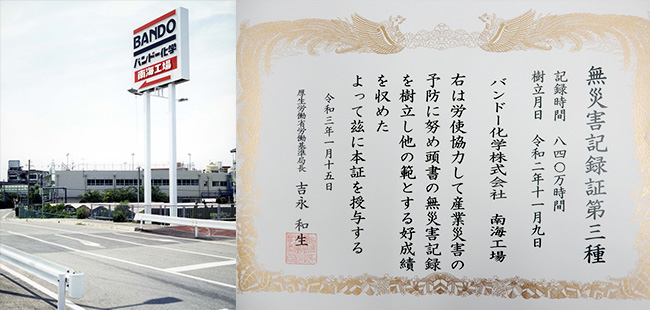 BANDO
バンドー化学
南海工場
無災害記録証第三種
記録時間 八四〇万時間
樹立月日 令和二年十一月九日
バンドー化学株式会社 南海工場
右は労使協力して産業災害の
予防に努め頭書の無災害記録
を樹立し他の範とする好成績
を収めた
よって玆に本証を授与する
令和三年一月十五日
厚生労働省労働基準局長 吉永和生